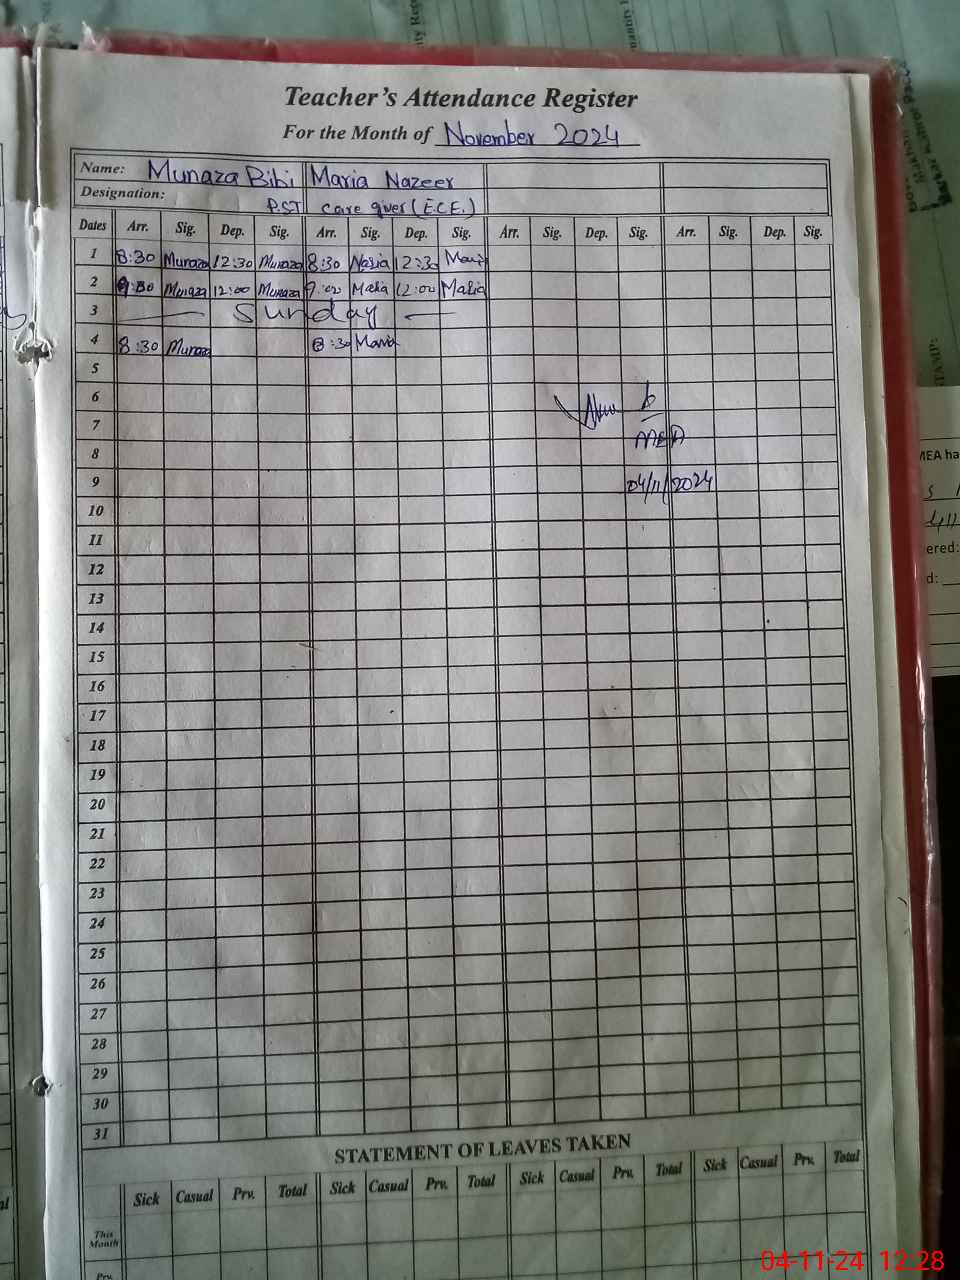 Teacher's Attendance Register
For the Month of November 2024
Name: Munaza Bibi Maria Nazeer
Designation: P.ST care giver (E.C.E.)
Dates Arr. Sig. Dep. Sig. Arr. Sig. Dep. Sig. Arr. Sig. Dep. Sig. Arr. Sig. Dep. Sig.
1 8:30 Munaza 12:30 Munaza 8:30 Maria 12:30 Maria
2 Munaza 12:00 Munaza 9:00 Maria 12:00 Maria
3 Sunday
4 8:30 Munaza 8:30 Maria
5
6
7
MEA
8
9 04/11/2024
10
11
12
13
14
15
16
17
18
19
20
21
22
23
24
25
26
27
28
29
30
31
STATEMENT OF LEAVES TAKEN
Sick Casual Prv. Total Sick Casual Prv. Total Sick Casual Prv. Total Sick Casual Prv. Total
This
Month
Prv.
MEA ha
ered:
d:
04-11-24 12:28